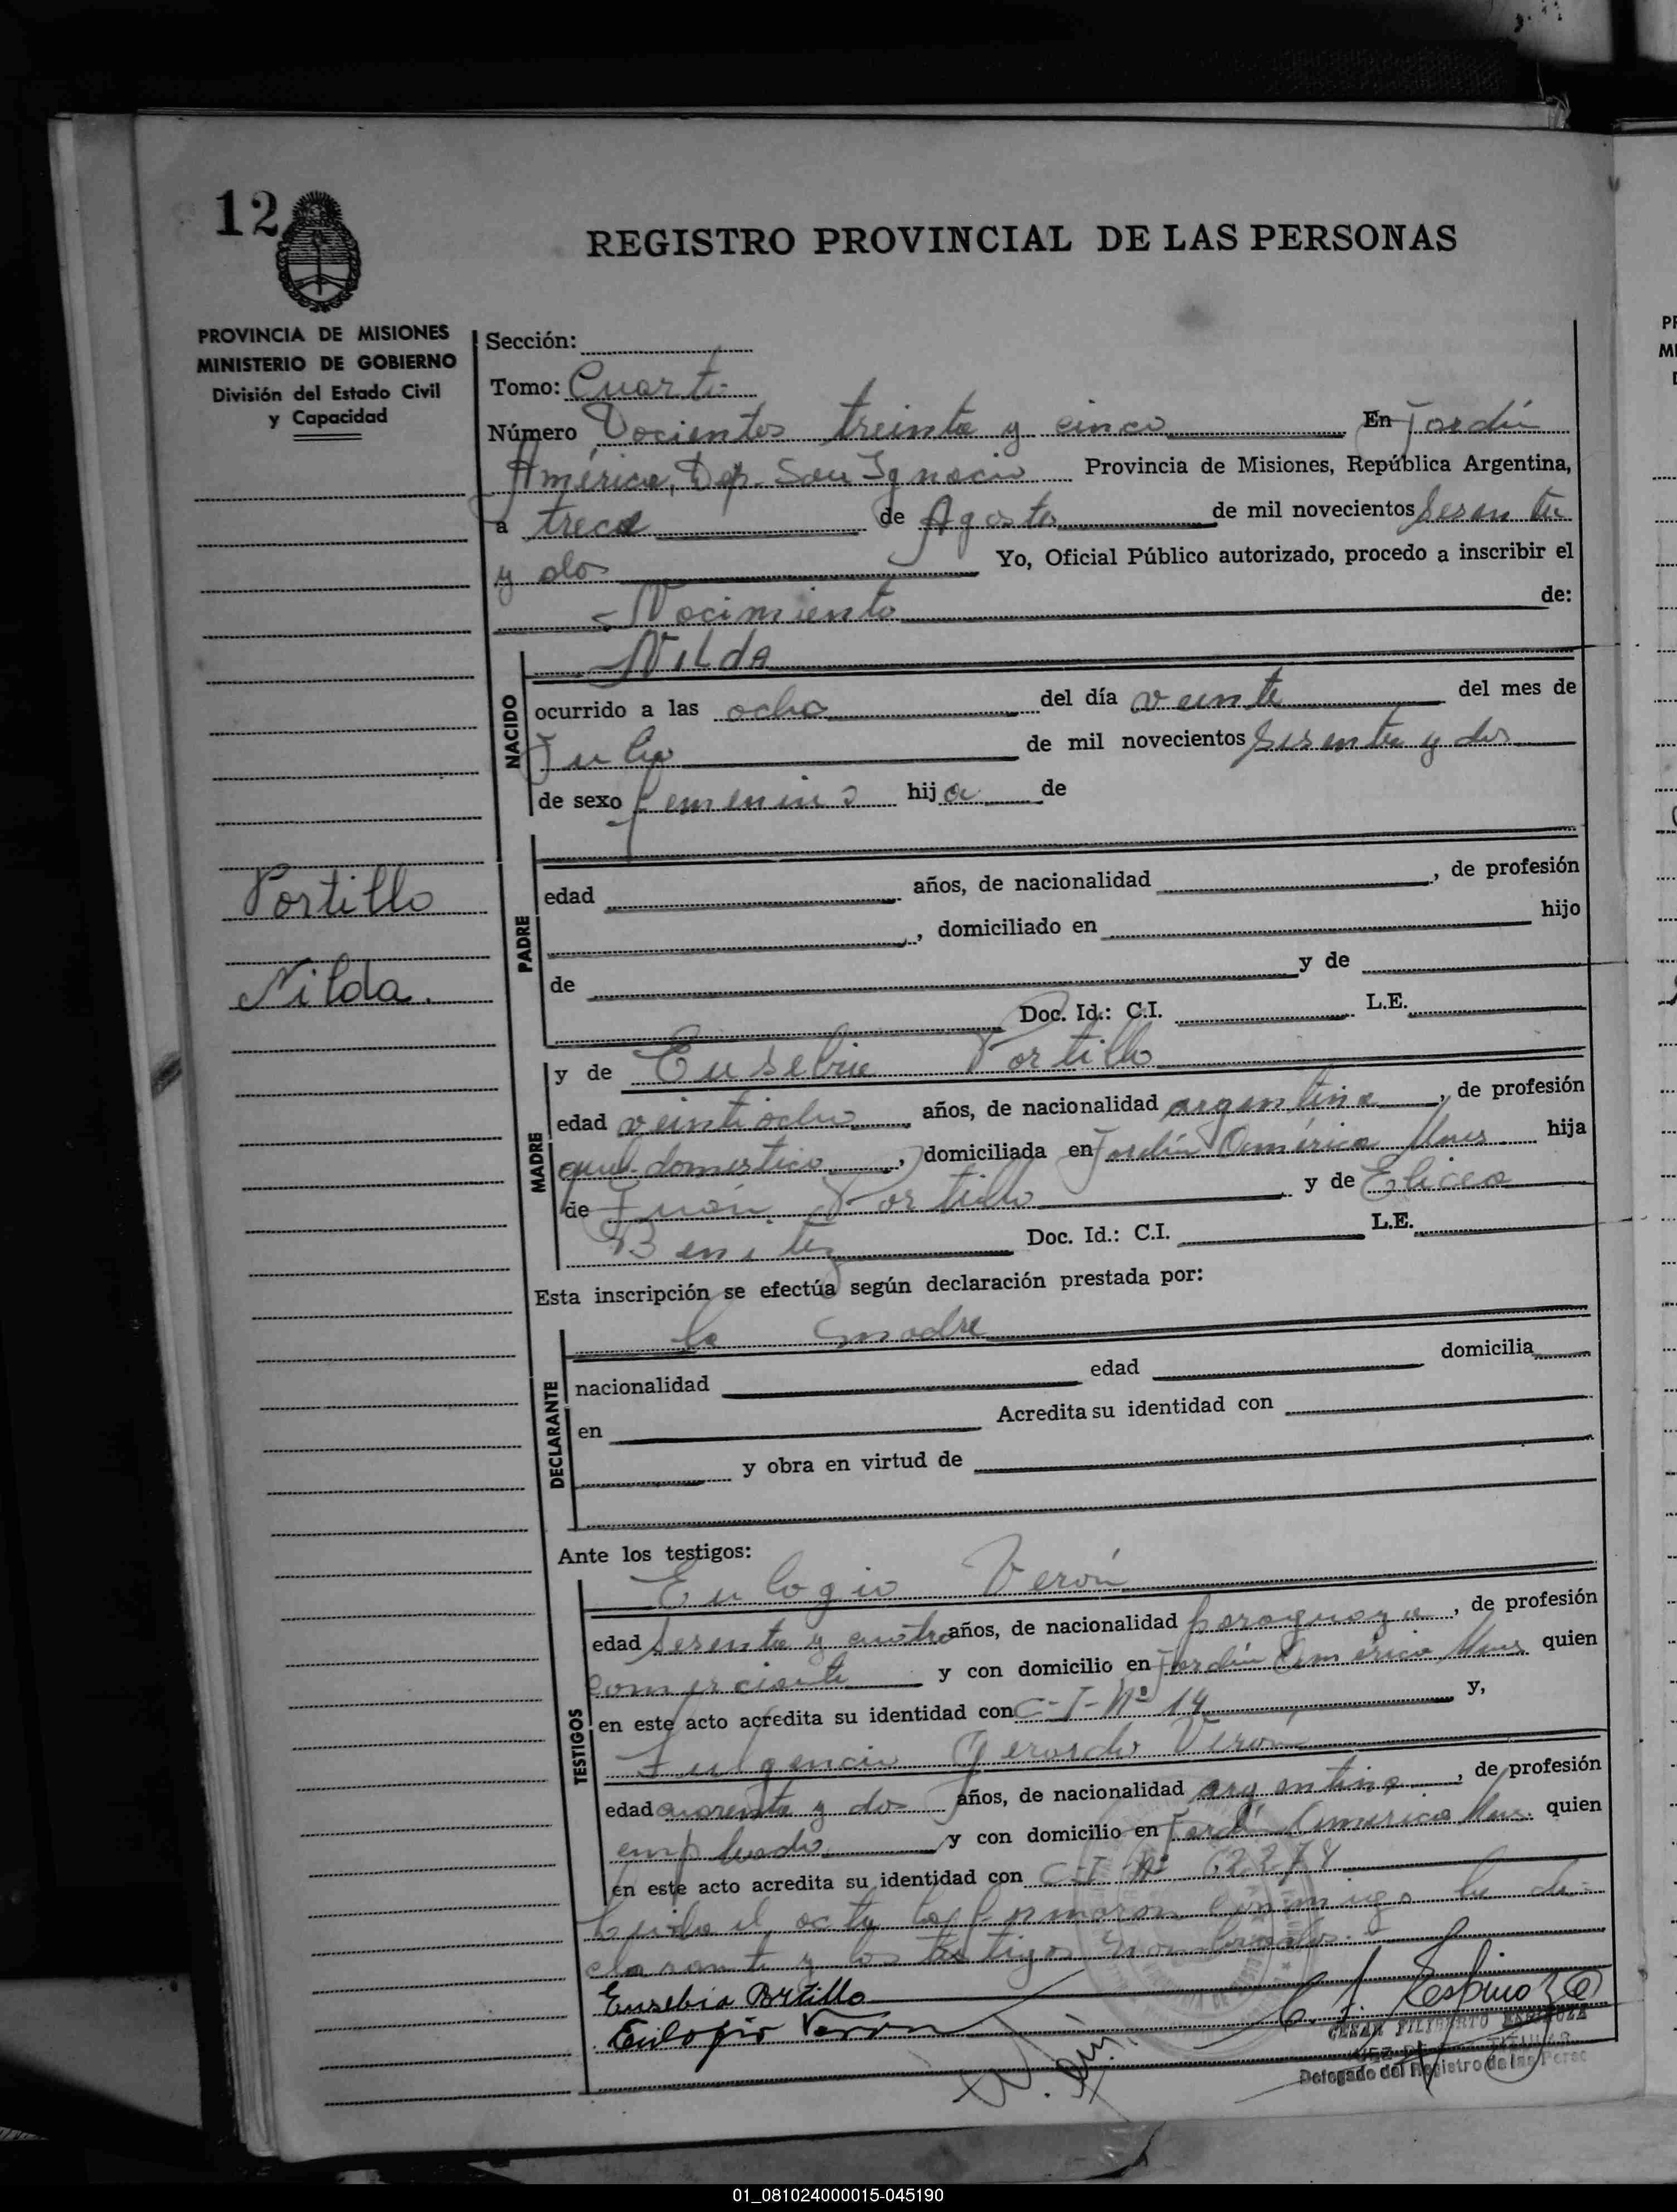 12
REGISTRO PROVINCIAL DE LAS PERSONAS
PROVINCIA DE MISIONES
MINISTERIO DE GOBIERNO
División del Estado Civil
y Capacidad
Portillo
Nilda.
Sección:
Tomo: Cuarto
Número Docientos treinta y cinco En Jardín
América, Dep. San Ignacio Provincia de Misiones, República Argentina,
a trece de Agosto de mil novecientos sesenta
y dos Yo, Oficial Público autorizado, procedo a inscribir el
Nacimiento de:
NACIDO
Nilda
ocurrido a las ocho del día veinte del mes de
Julio de mil novecientos sesenta y dos
de sexo femenino hija de
PADRE
edad años, de nacionalidad , de profesión
, domiciliado en hijo
de y de
Doc. Id.: C.I. L.E.
MADRE
y de Eusebia Portillo
edad veintiocho años, de nacionalidad argentina, de profesión
domestico, domiciliada en Jardín América Mnes hija
de Juan Portillo y de Elicea
Benitez Doc. Id.: C.I. L.E.
Esta inscripción se efectúa según declaración prestada por:
DECLARANTE
la madre
nacionalidad edad domicilia
en Acredita su identidad con
y obra en virtud de
Ante los testigos:
TESTIGOS
Eulogio Verón
edad sesenta y cuatro años, de nacionalidad paraguaya, de profesión
comerciante y con domicilio en Jardín América Mnes quien
en este acto acredita su identidad con C-I-Nº 14 y,
Fulgencio Gerardo Verón
edad cuarenta y dos años, de nacionalidad argentina, de profesión
empleado y con domicilio en Jardín América Mnes. quien
en este acto acredita su identidad con C-I-Nº 62278
Leida el acta la firmaron conmigo la de-
clarante y los testigos nombrados.
Eusebia Portillo
Eulogio Veron
C. F. Espinoza
CESAR FILIBERTO ESPINOZA
TITULAR
Delegado del Registro de las Perso
01_081024000015-045190